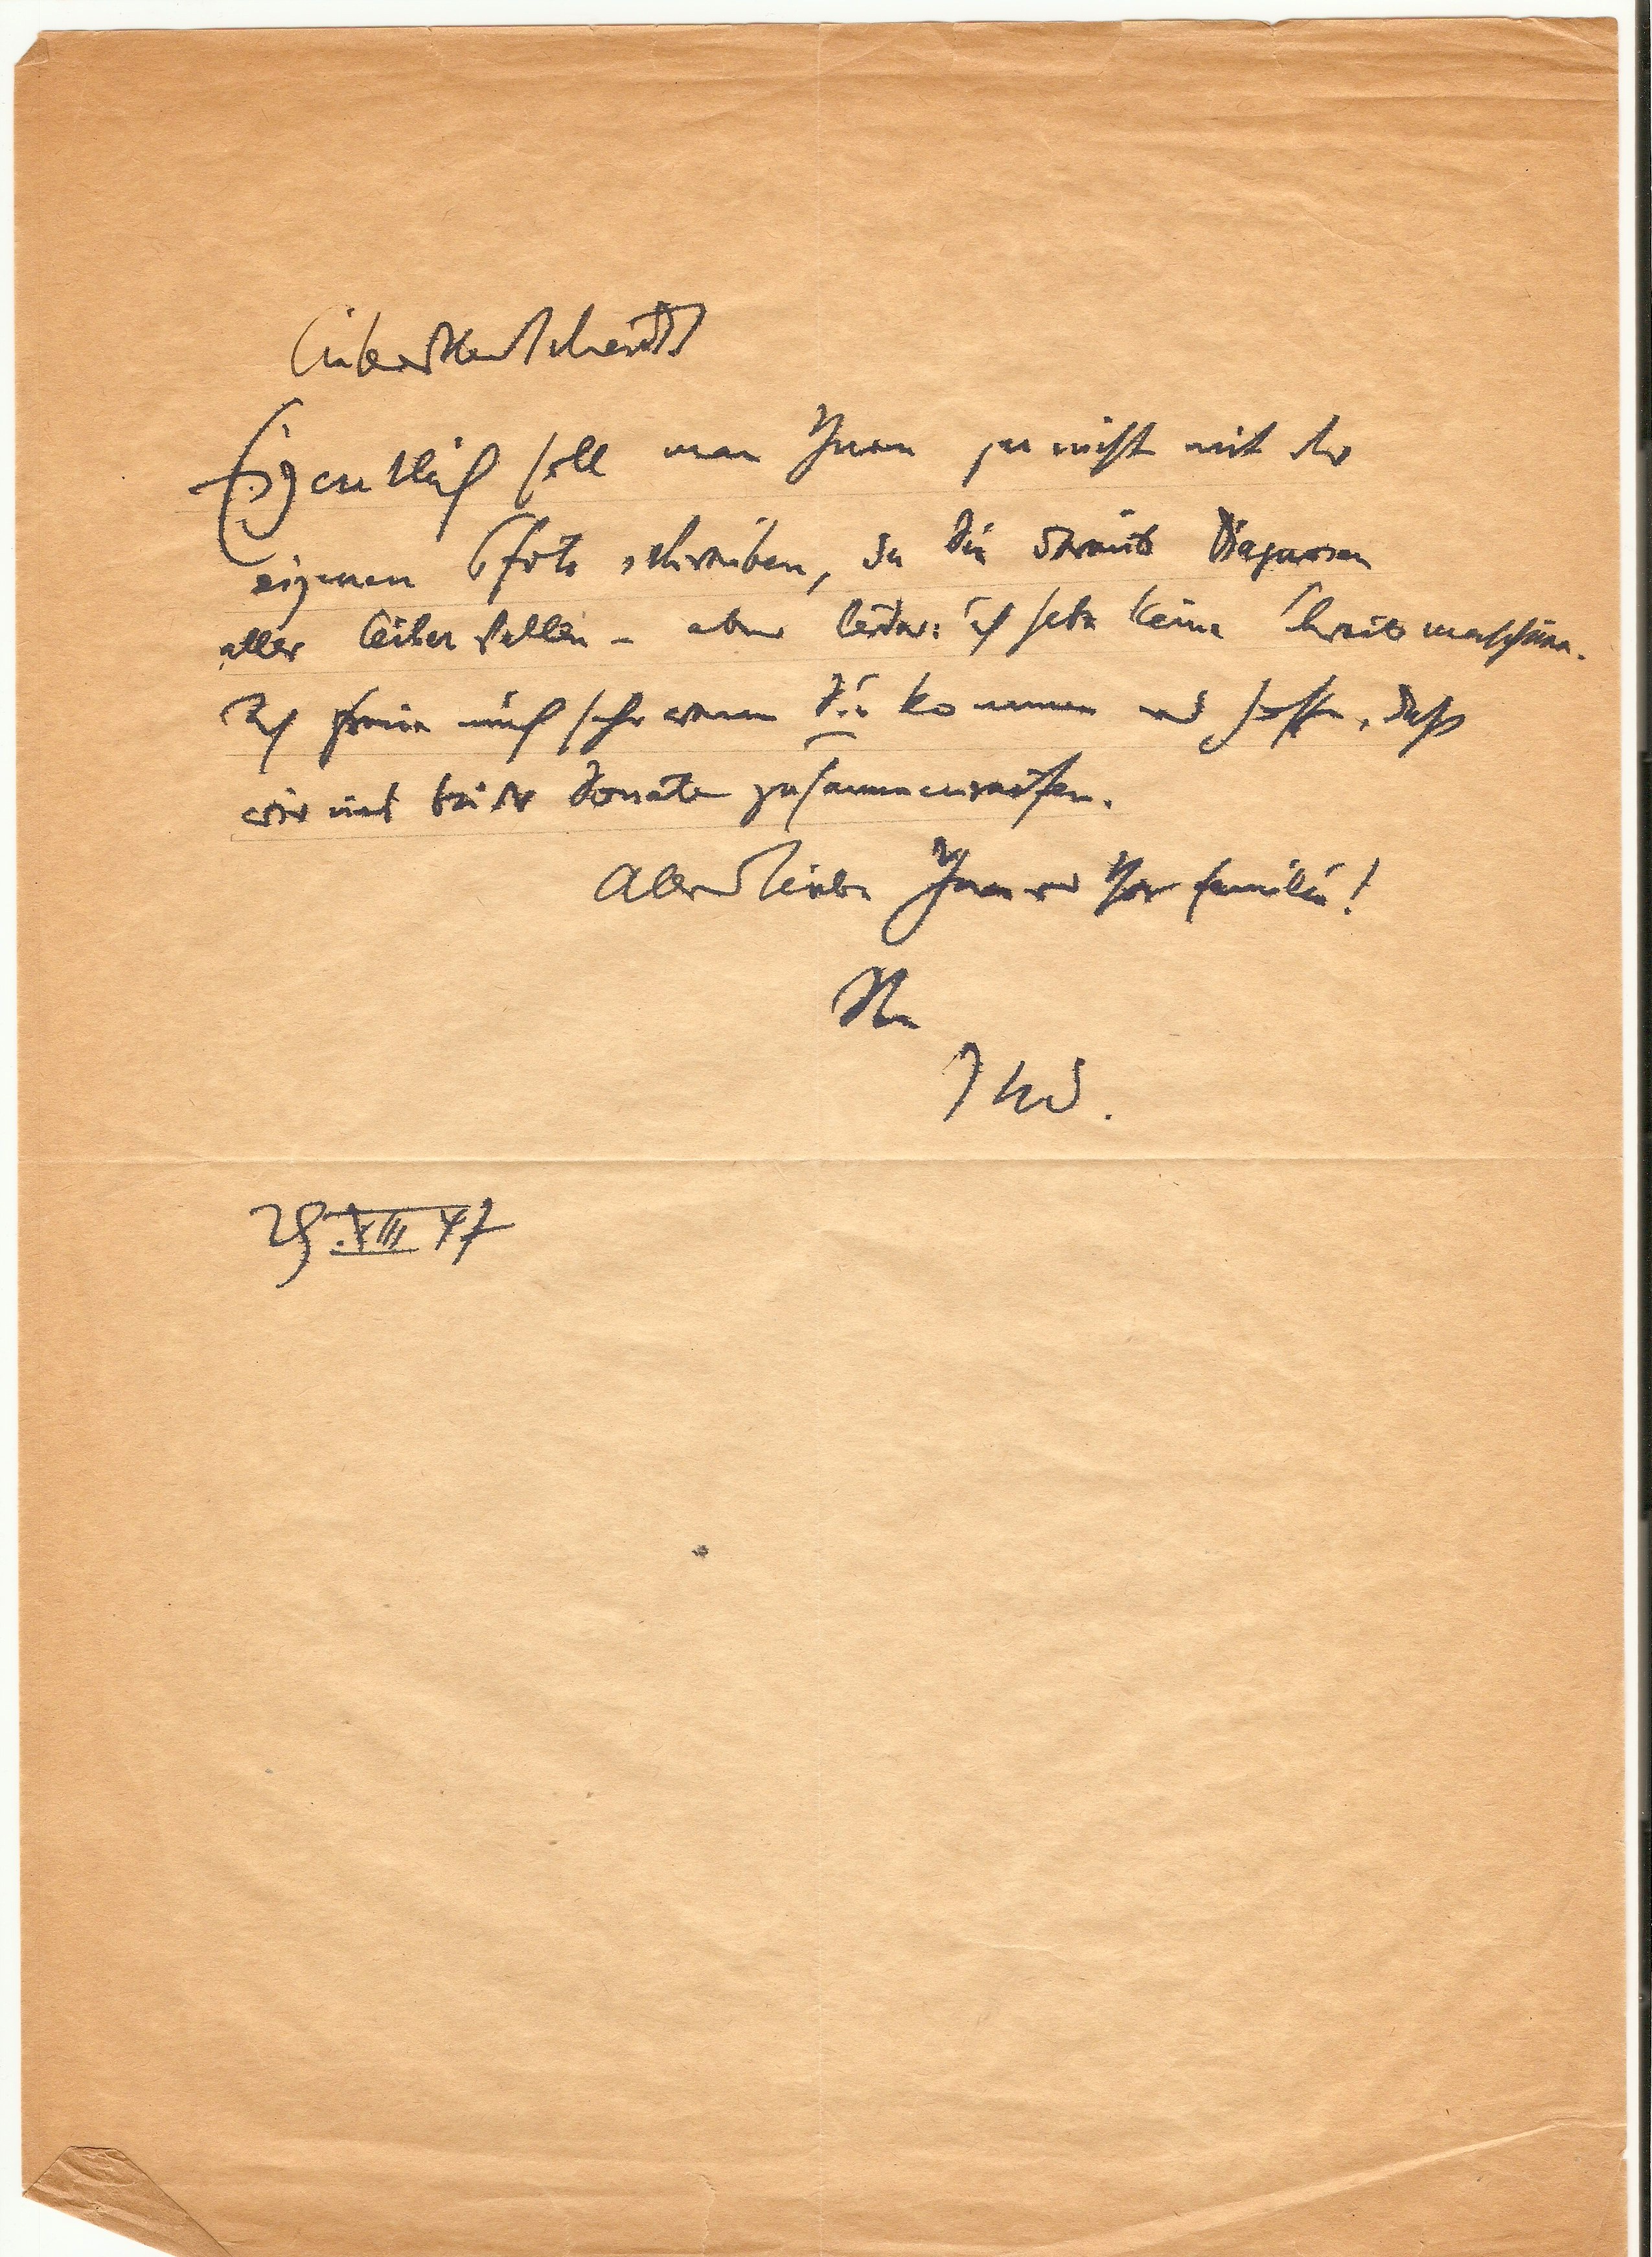 Lieber Herr
Eigentlich soll man Ihnen ja nicht mit der
eigenen Pfote schreiben, da Sie Diagnosen
aller stellen – aber leider: ich habe keine Schreibmaschine.
Ich freue mich sehr wenn Sie kommen und hoffe, daß
wir mit der zusammen
Alles Liebe Ihnen und Ihrer Familie!
Ihr

29.VIII 47